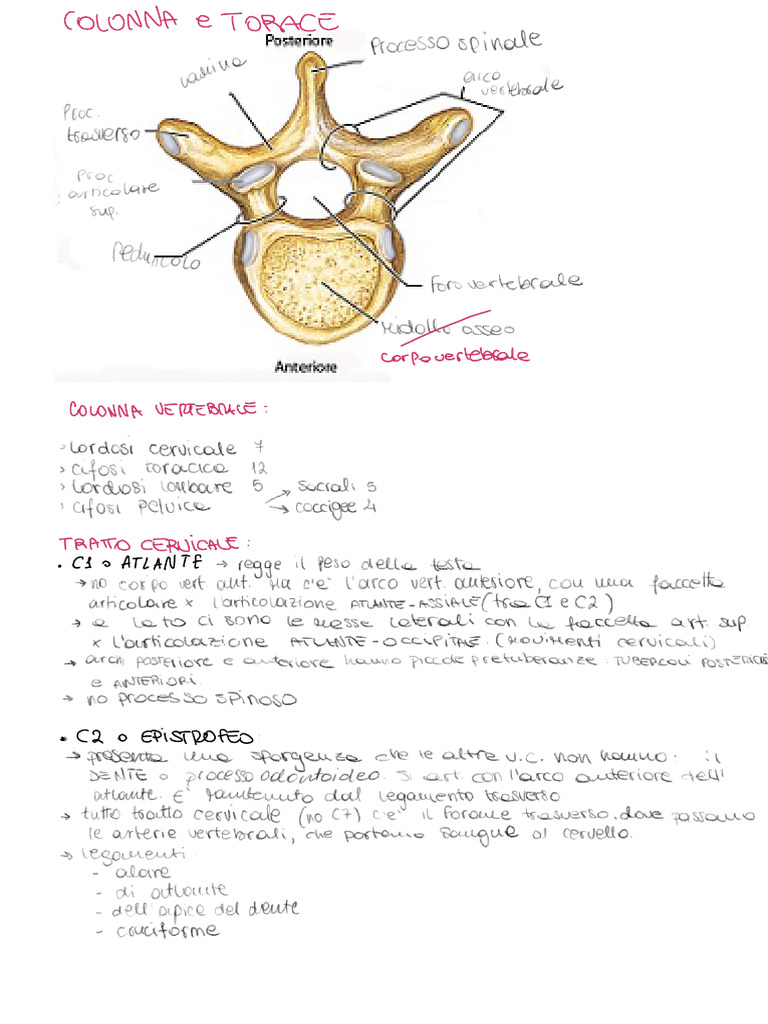 COLONNA e TORACE
Posteriore
Processo spinale
lamina
arco vertebrale
Proc. trasverso
Proc articolare sup.
peduncolo
Foro vertebrale
Midollo osseo
corpo vertebrale
Anteriore
COLONNA VERTEBRALE:
lordosi cervicale 7
cifosi toracica 12
lordosi lombare 5
cifosi pelvica
→ sacrali 5
→ coccigee 4
TRATTO CERVICALE:
• C1 o ATLANTE → regge il peso della testa
→ no corpo vert. ant. Ma c'è l'arco vert. anteriore, con una faccetta
articolare x l'articolazione ATLANTE-ASSIALE (tra C1 e C2)
→ a lato ci sono le masse laterali con la faccetta art. sup
x l'articolazione ATLANTE-OCCIPITALE. (MOVIMENTI cervicali)
→ archi posteriore e anteriore hanno piccole protuberanze: TUBERCOLI POSTERIORI
e ANTERIORI.
→ no processo spinoso
• C2 o EPISTROFEO:
→ presenta una sporgenza che le altre v.c. non hanno: il
DENTE o processo odontoideo. Si art. con l'arco anteriore dell'
atlante. E' mantenuto dal legamento trasverso
→ tutto tratto cervicale (no C7) c'è il Forame trasverso. dove passano
le arterie vertebrali, che portano sangue al cervello.
→ legamenti:
- alare
- di atlante
- dell'apice del dente
- cruciforme